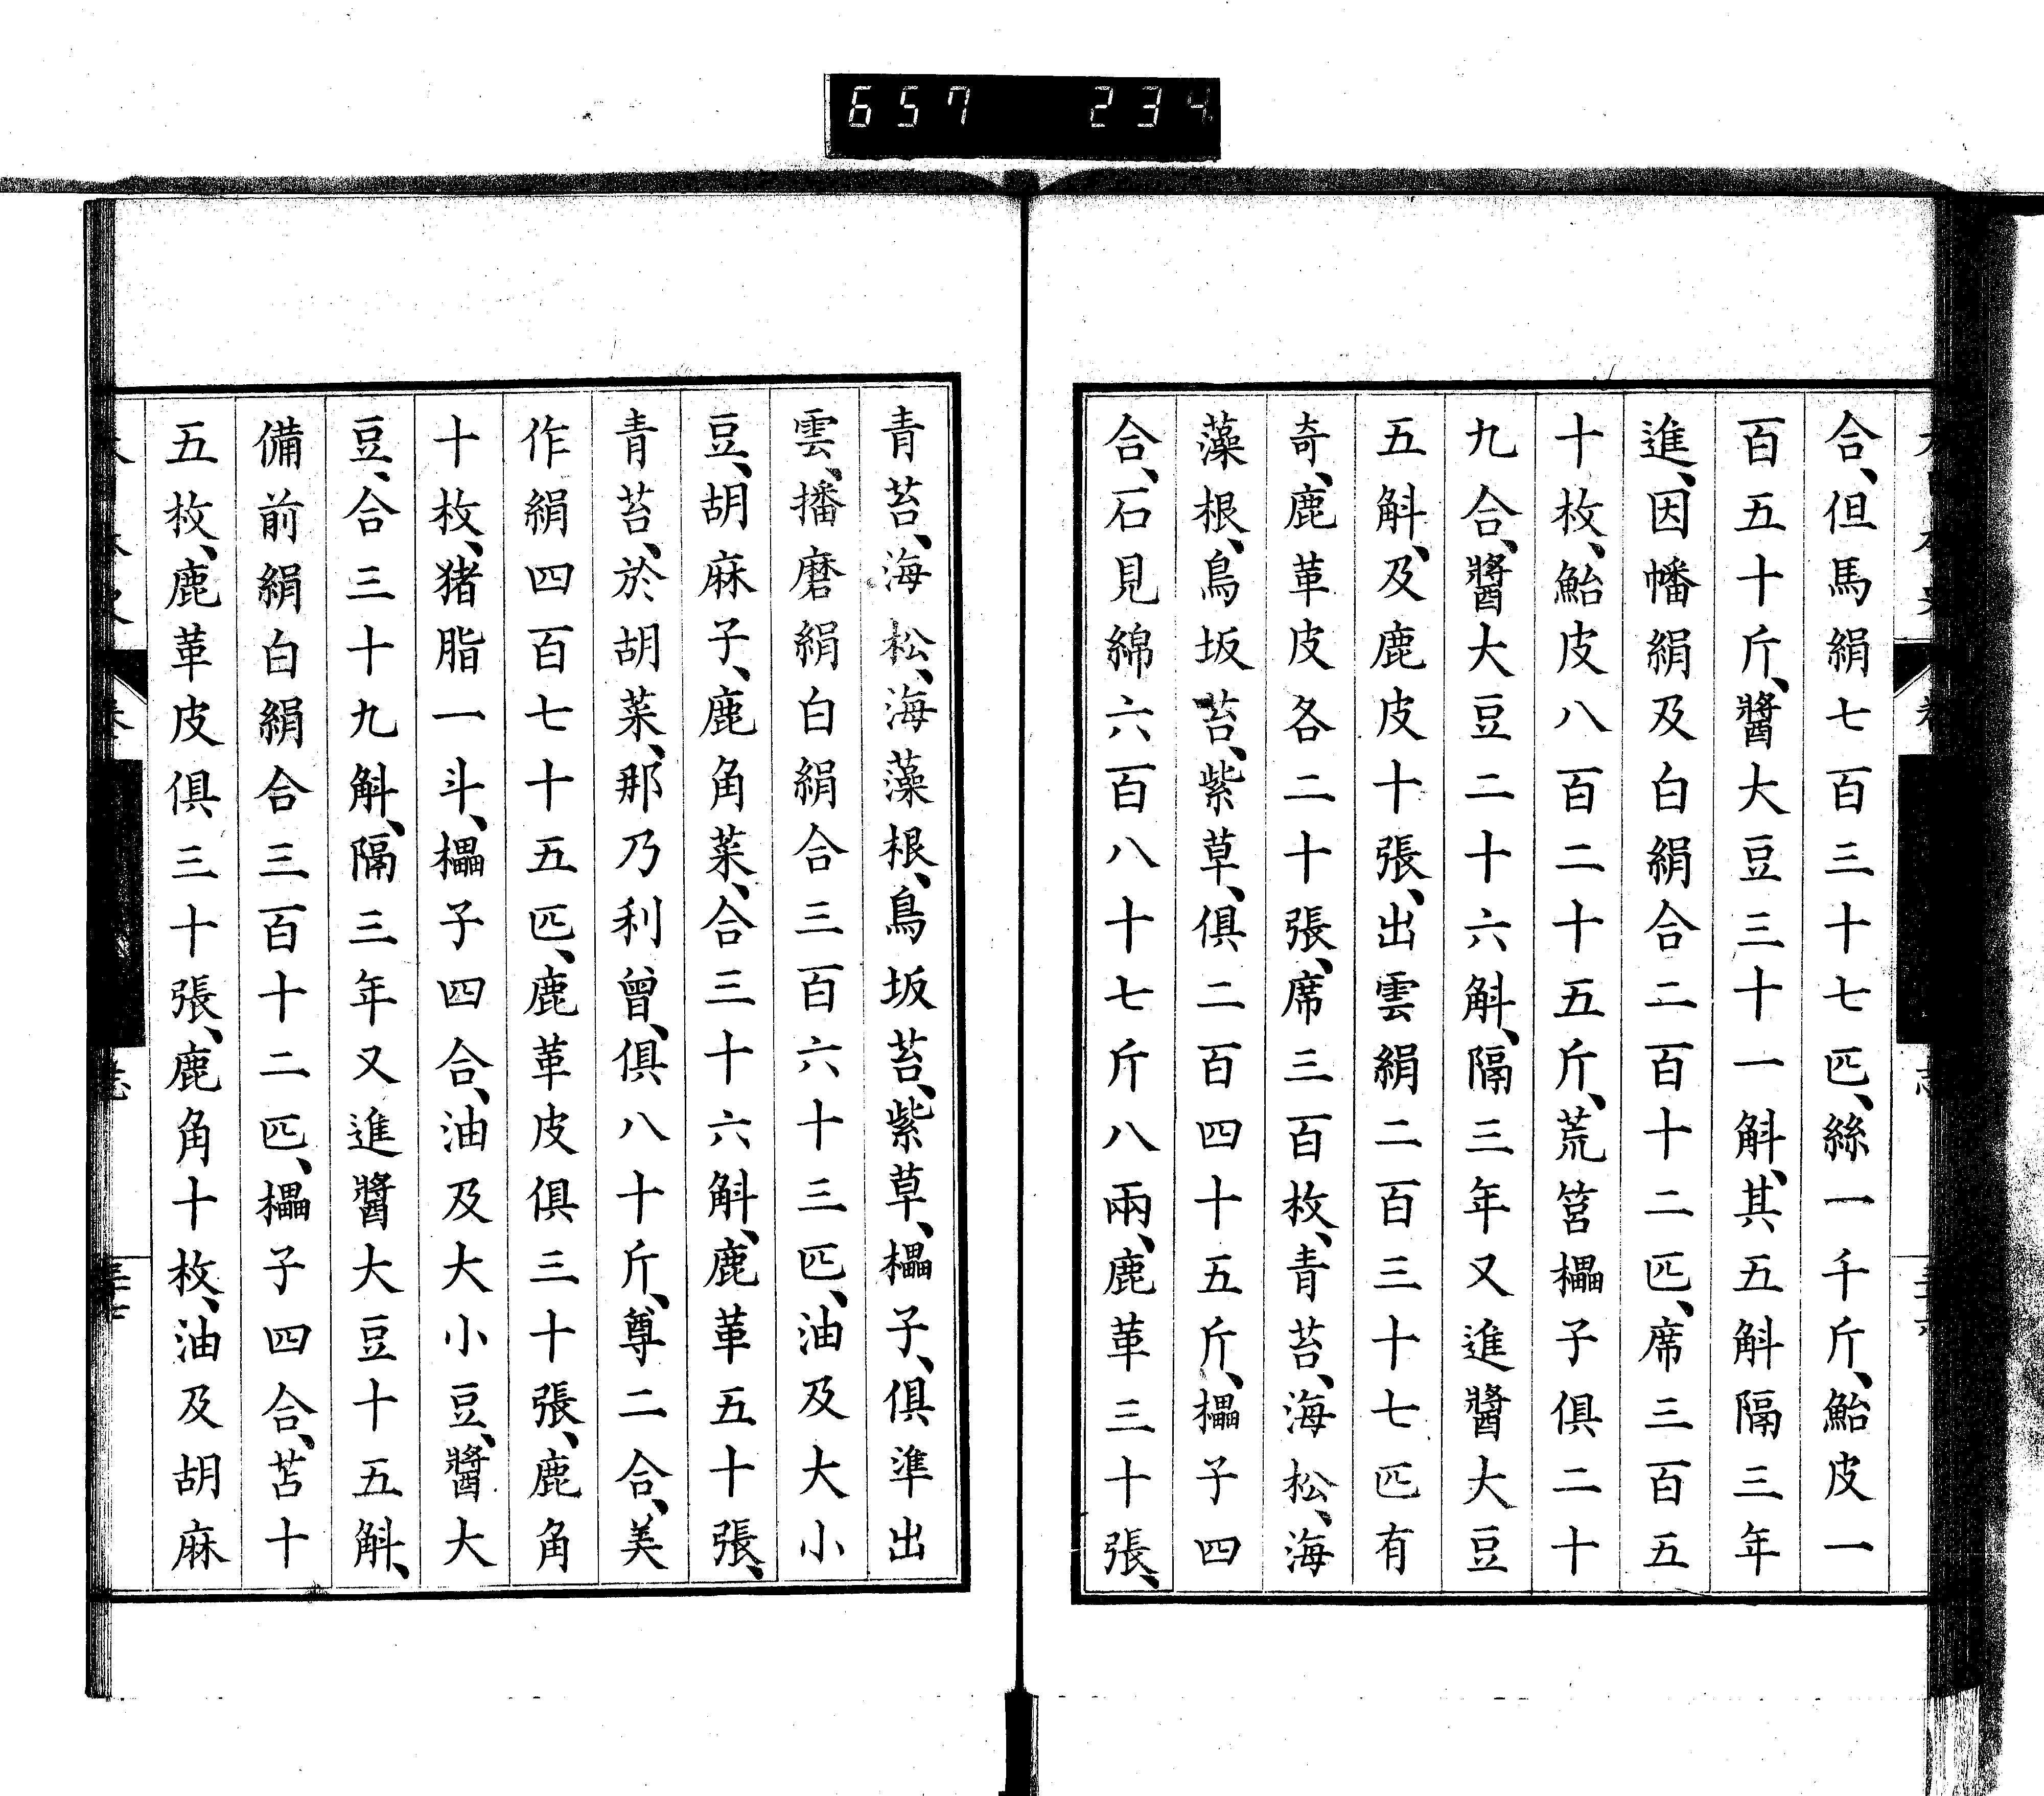 657 234
合、但馬絹七百三十七匹、絲一千斤、鮐皮一
百五十斤、醬大豆三十一斛、其五斛隔三年
進、因幡絹及白絹合二百十二匹、席三百五
十枚、鮐皮八百二十五斤、荒筥櫑子俱二十
九合、醬大豆二十六斛、隔三年又進醬大豆
五斛、及鹿皮十張、出雲絹二百三十七匹有
奇、鹿革皮各二十張、席三百枚、青苔、海松、海
藻根、鳥坂苔、紫草、俱二百四十五斤、櫑子四
合、石見綿六百八十七斤八兩、鹿革三十張、
青苔、海松、海藻根、鳥坂苔、紫草、櫑子、俱準出
雲、播磨絹白絹合三百六十三匹、油及大小
豆、胡麻子、鹿角菜、合三十六斛、鹿革五十張、
青苔、於胡菜、那乃利曾、俱八十斤、尊二合、美
作絹四百七十五匹、鹿革皮俱三十張、鹿角
十枚、猪脂一斗、櫑子四合、油及大小豆、醬大
豆、合三十九斛、隔三年又進醬大豆十五斛、
備前絹白絹合三百十二匹、櫑子四合、苫十
五枚、鹿革皮俱三十張、鹿角十枚、油及胡麻